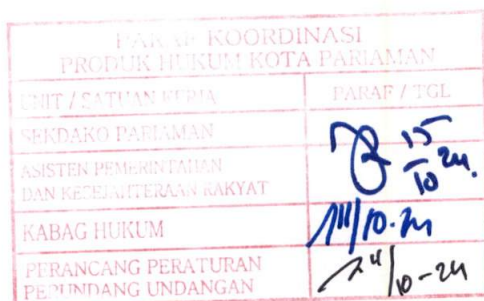 PARAF KOORDINASI
PRODUK HUKUM KOTA PARIAMAN
UNIT / SATUAN KERJA PARAF / TGL
SEKDAKO PARIAMAN
ASISTEN PEMERINTAHAN
DAN KESEJAHTERAAN RAKYAT
15/10 24.
KABAG HUKUM
/10-24
PERANCANG PERATURAN
PERUNDANG UNDANGAN
/10-24